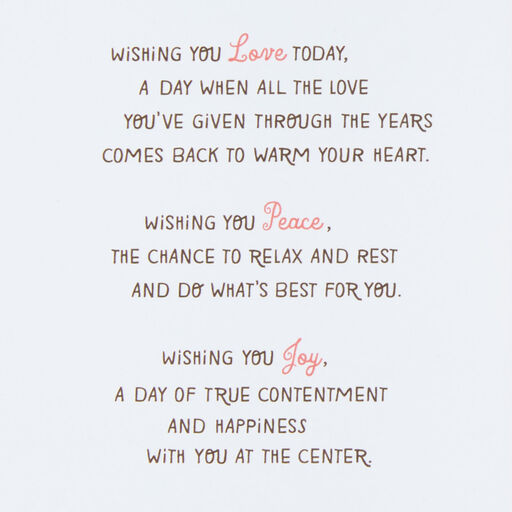 WiSHiNG YOU Love TODAY,
A DAY WHEN ALL THE LOVE
YOU'VE GiVEN THROUGH THE YEARS
COMES BACK TO WARM YOUR HEART.
WiSHiNG YOU Peace,
THE CHANCE TO RELAX AND REST
AND DO WHAT'S BEST FOR YOU.
WiSHiNG YOU Joy,
A DAY OF TRUE CONTENTMENT
AND HAPPiNESS
WiTH YOU AT THE CENTER.